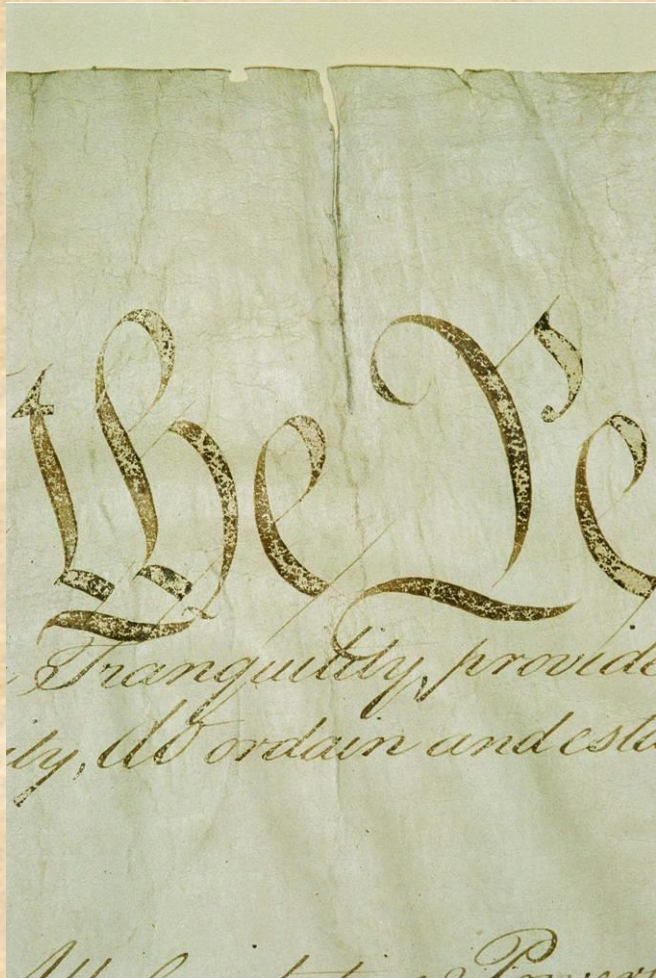 the Pe
Tranquility, provide
ity, do ordain and esta